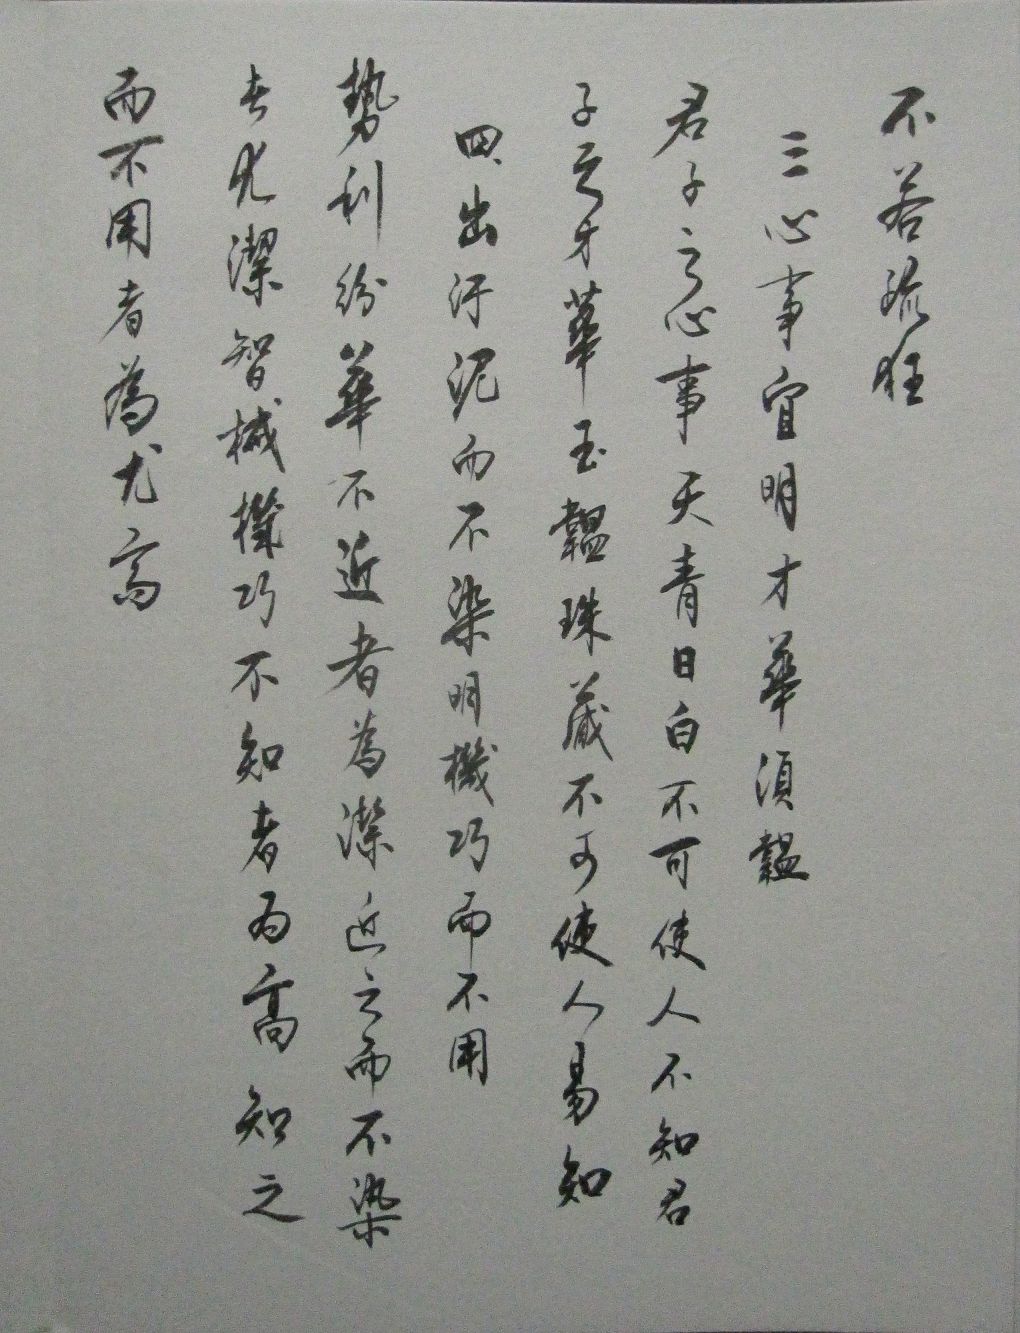 不若疏狂
三心事宜明才華須韞
君子之心事天青日白不可使人不知君
子之才華玉韞珠藏不可使人易知
四、出汙泥而不染明機巧而不用
勢利紛華不近者為潔近之而不染
者尤潔智械機巧不知者為高知之
而不用者為尤高